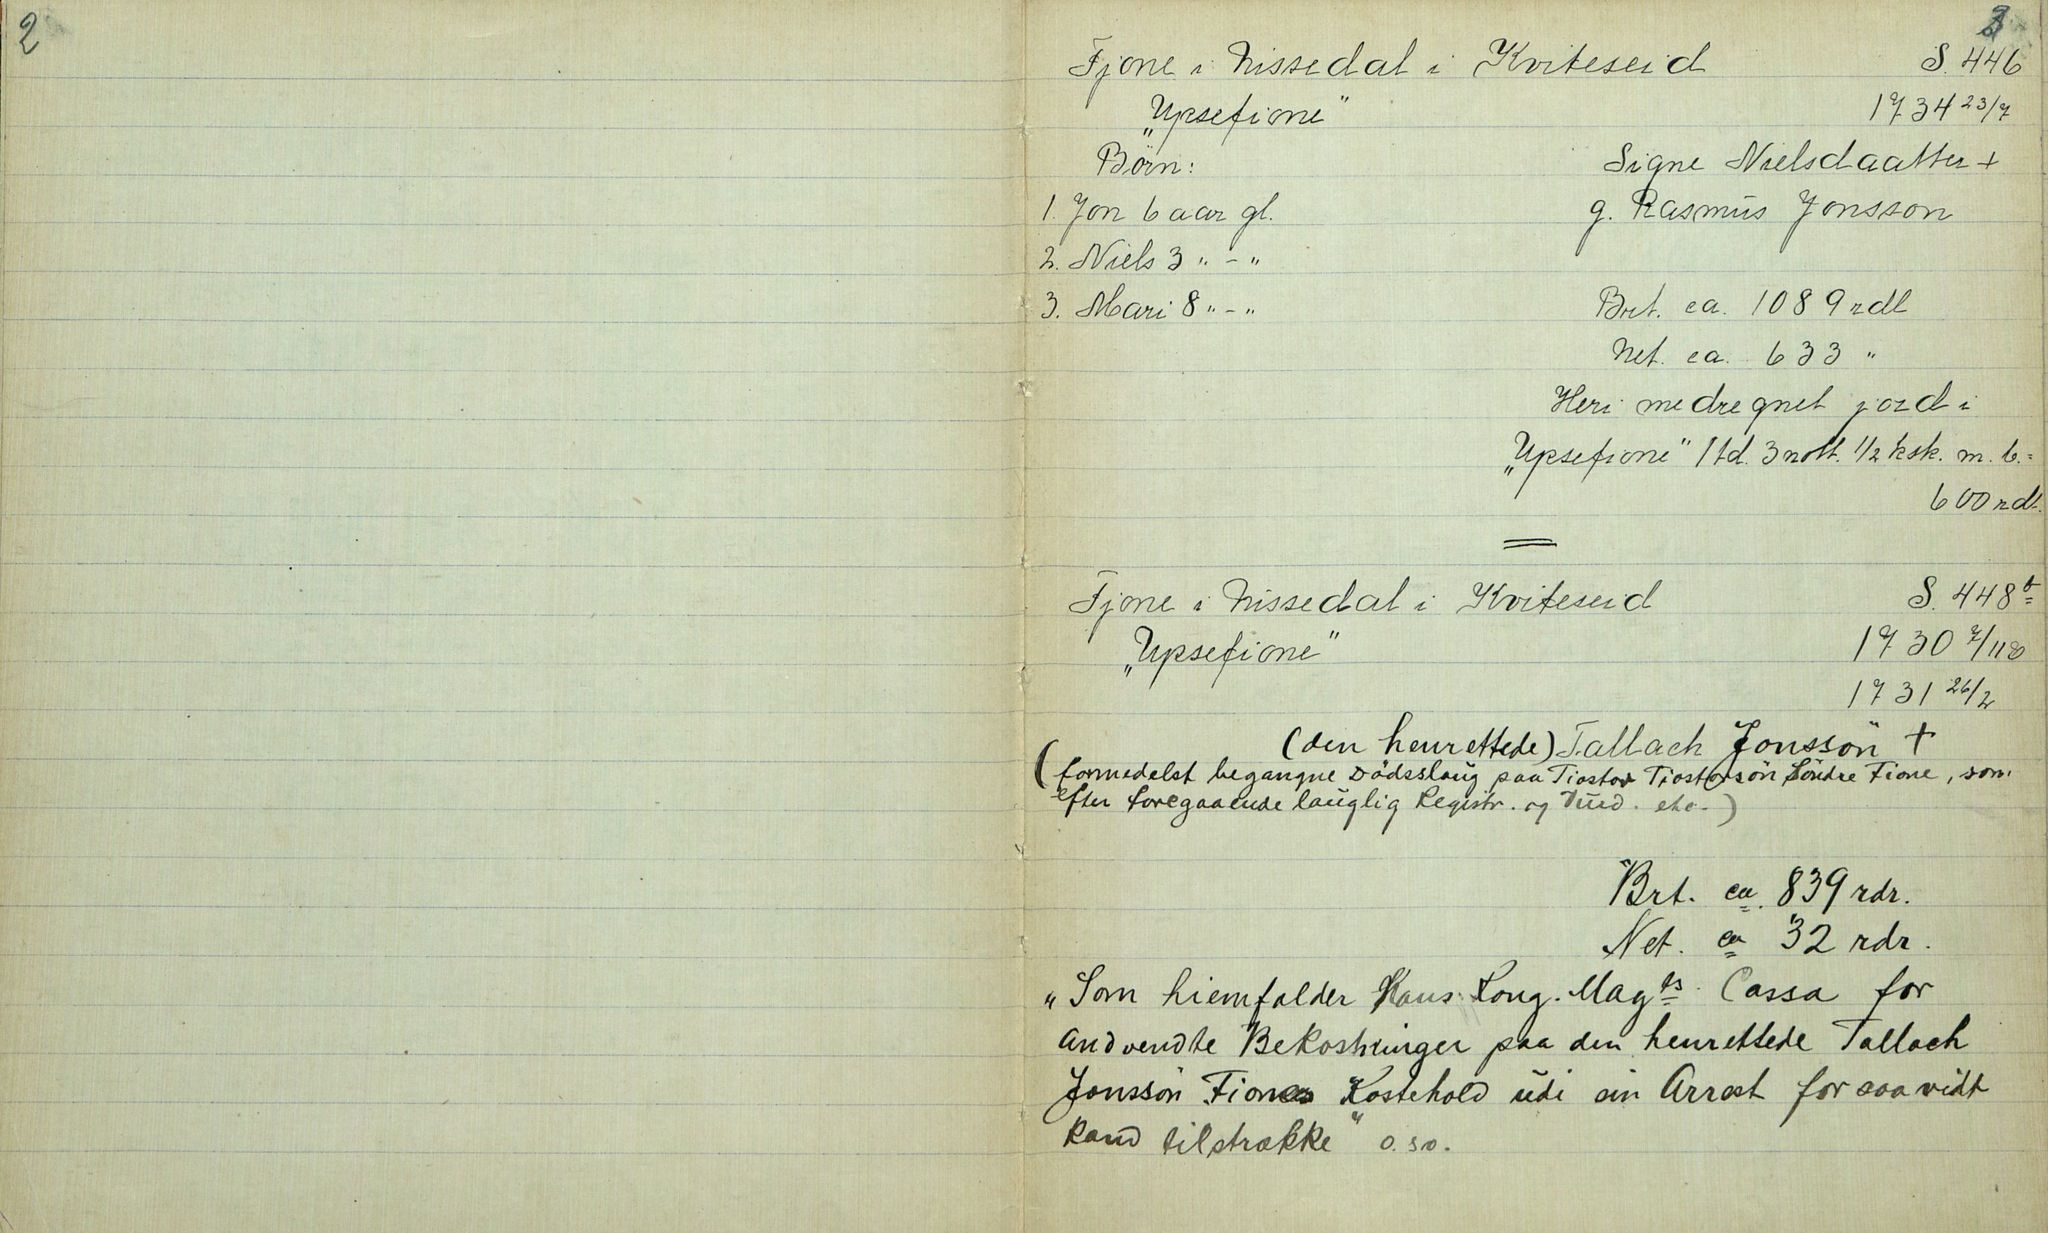 2
3
Fjone i Nissedal i Kviteseid S. 446
„Upsefione" 1734 23/7
Börn: Signe Nielsdaatter +
1. Jon 6 aar gl. g. Rasmus Jonsson
2. Niels 3 " - "
3. Mari 8 " - " Brt. ca. 1089 rdl
Net. ca. 633 "
Heri medregnet jord i
„Upsefione" 1 td. 3 sett. 1/2 ksk. m. b. =
600 rdl.
Fjone i Nissedal i Kviteseid S. 448 b
„Upsefione" 1730 7/11 &
1731 26/2
(den henrettede) Tallach Jonssön +
(formedelst begangne Dödsslaug paa Tiostor Tiostorsön Söndre Fione, som
efter foregaaende lauglig Registr. og Vurd. etc.)
Brt. ca. 839 rdr.
Net. ca 32 rdr.
„Som hiemfalder Hans Kong. Mag ts Cassa for
andvendte Bekostninger paa den henrettede Tallach
Jonssön Fiones Kostehold udi sin Arrest for saavidt
kand tilstrække" o.s.v.